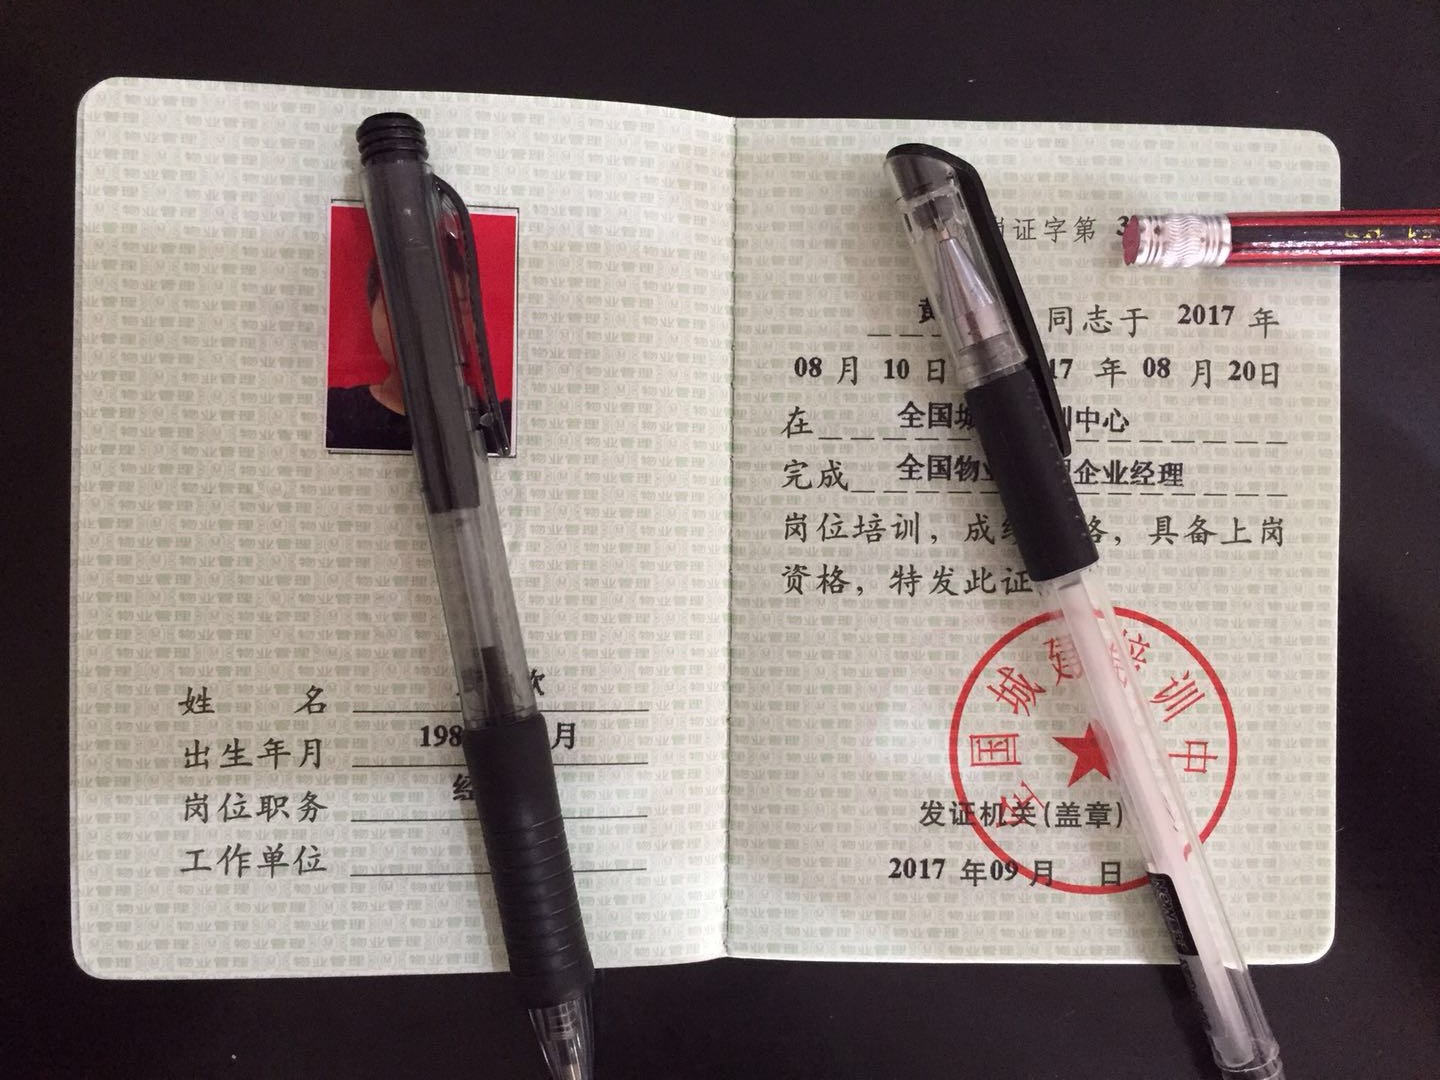 姓 名 欢
出生年月 198 月
岗位职务 经
工作单位
证字第 3
黄 同志于 2017 年
08 月 10 日 17 年 08 月 20日
在 全国城 训中心
完成 全国物业 理企业经理
岗位培训，成绩 格，具备上岗
资格，特发此证
全国城建培训中
发证机关(盖章)
2017 年09 月 日